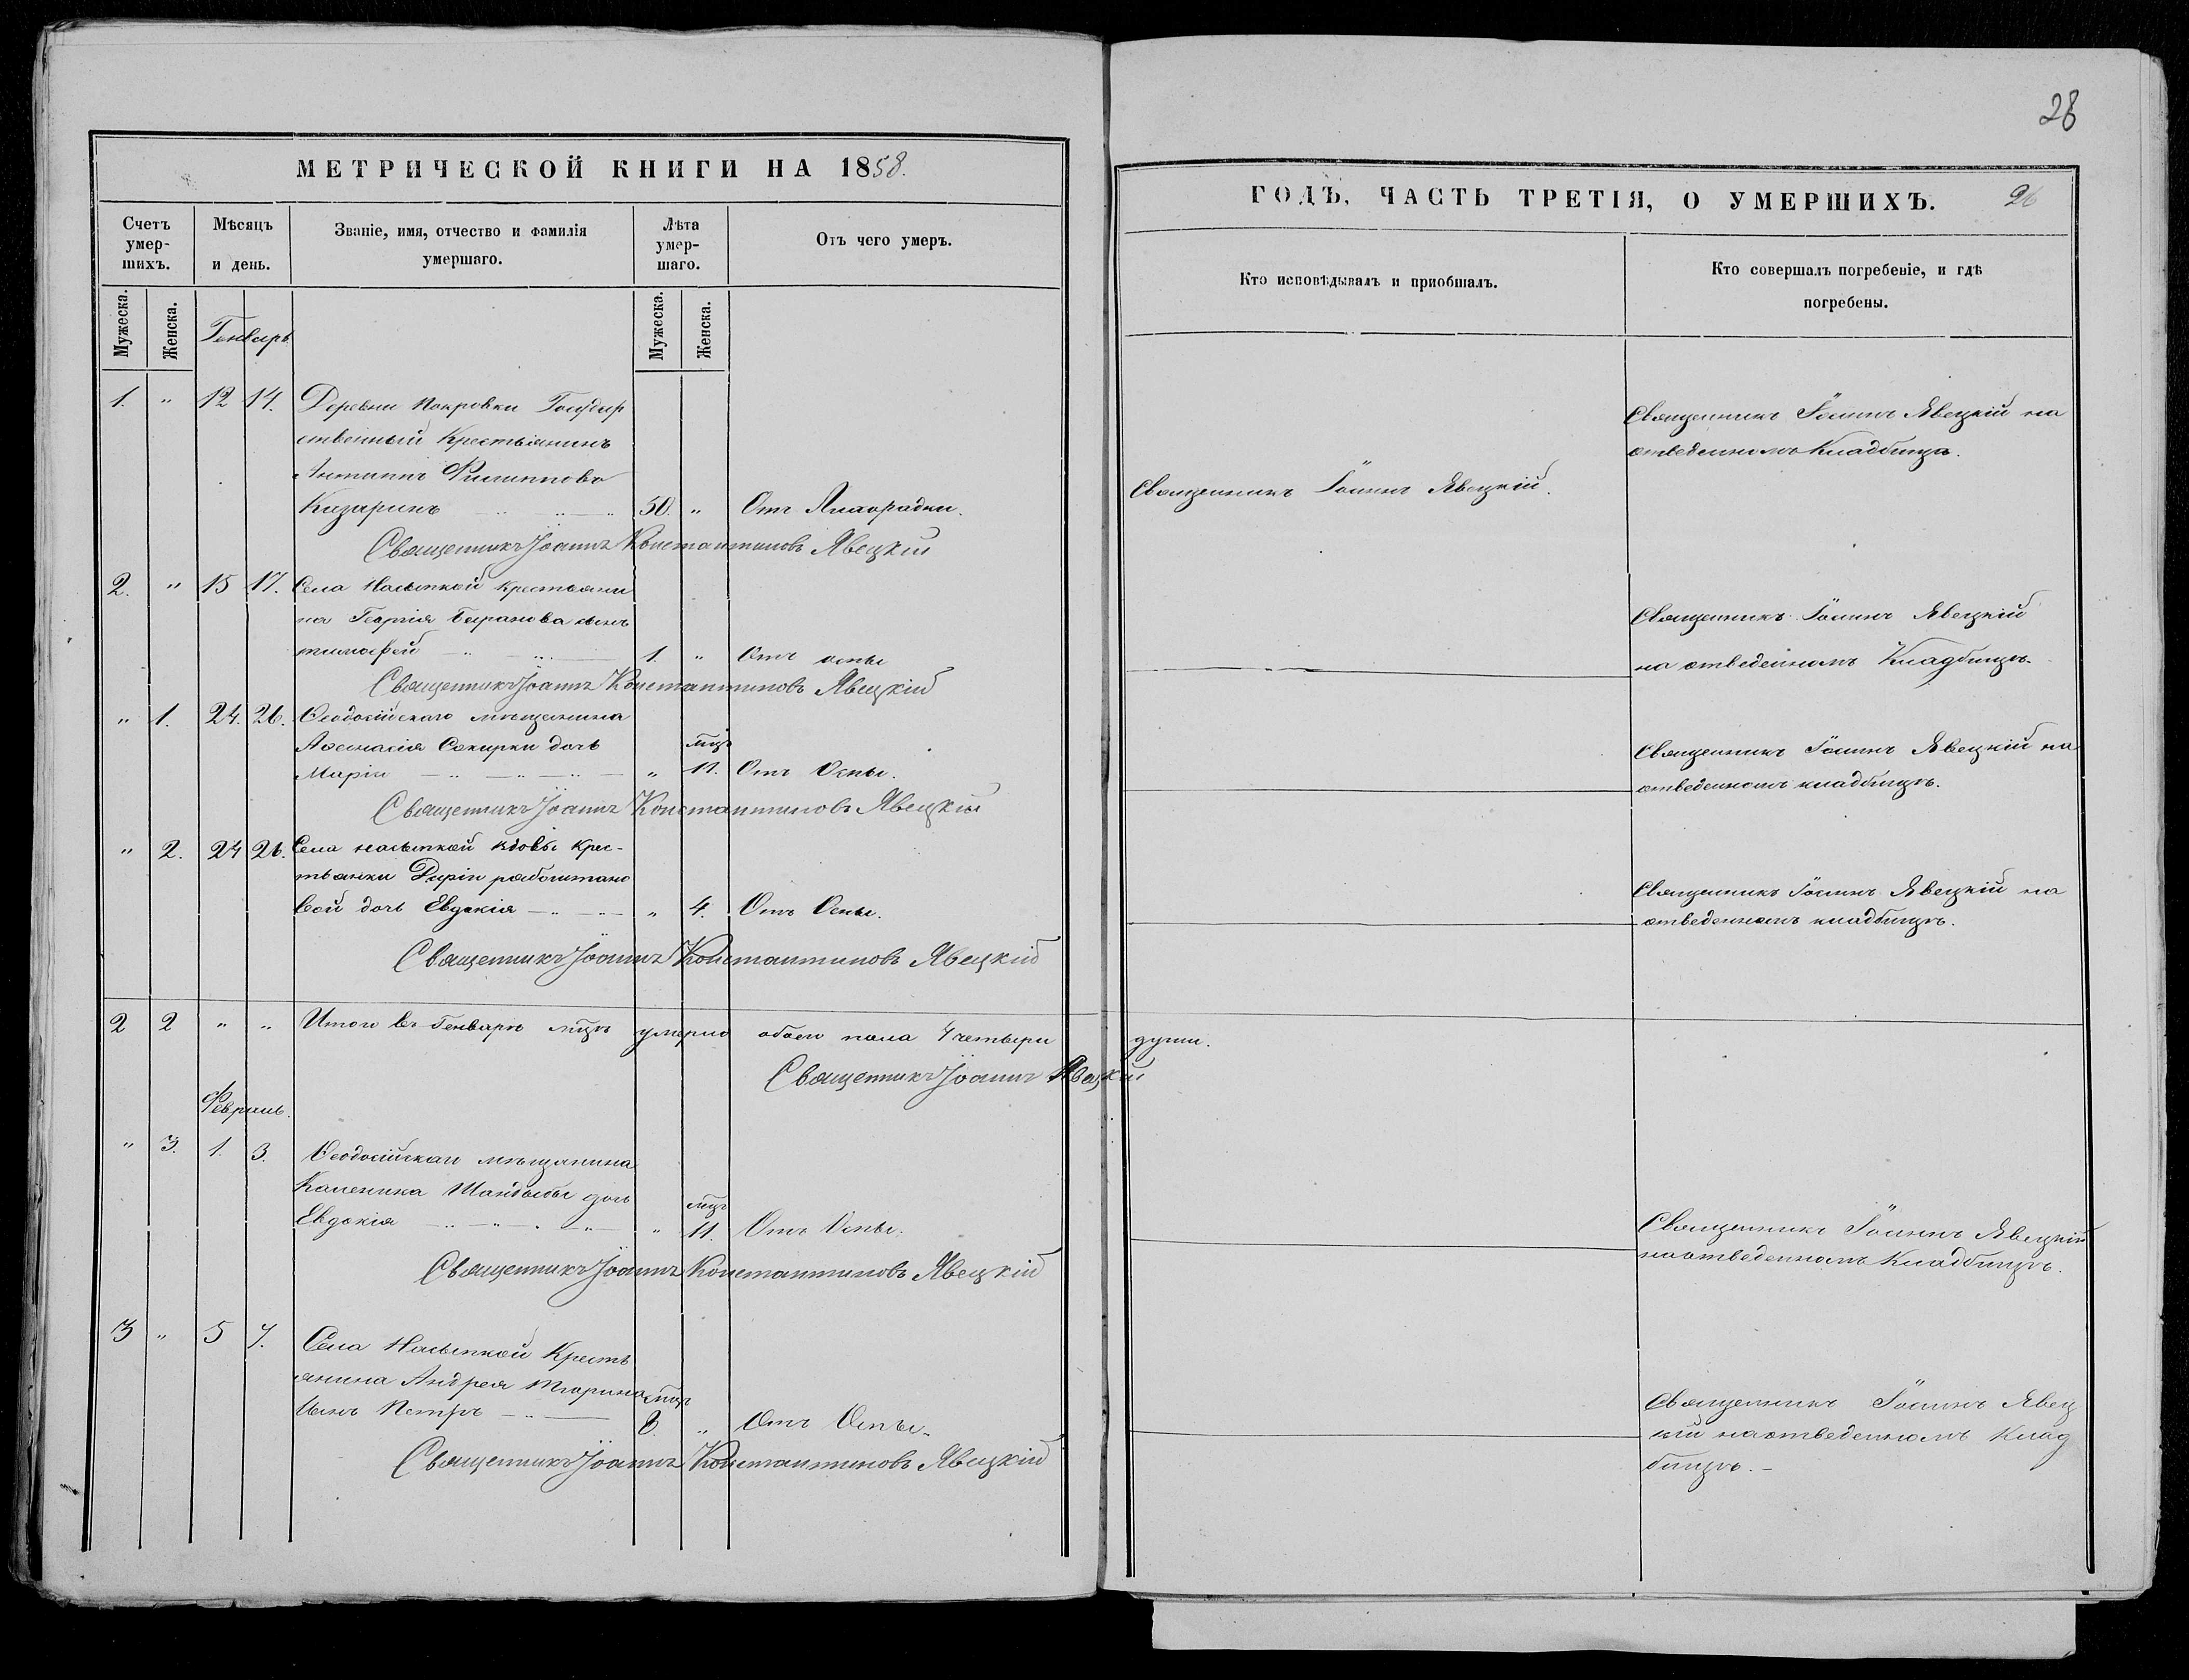 28
МЕТРИЧЕСКОЙ КНИГИ НА 1858.
Счетъ умершихъ.
Мѣсяцъ и день.
Званіе, имя, отчество и фамилія умершаго.
Лѣта умершаго.
Отъ чего умеръ.
Мужеска.
Женска.
Генварь
Мужеска.
Женска.
1. " 12 14. Деревни Покровки Государ
ственный Крестьянинъ
Антипъ Филиппово
Казаринъ 50. " Отъ
Священникъ Іоаннъ Константиновъ Явецкій
2. " 15 17. Села Насыпкой крестьяни
на Георгія Баранова сынъ
тимофей 1. " Отъ оспы
Священникъ Іоаннъ Константиновъ Явецкій
" 1. 24. 26. Ѳеодосійскаго мѣщанина
Аѳанасія Сокирки дочь мцъ
Марія " 11. Отъ Оспы.
Священникъ Іоаннъ Константиновъ Явецкій
" 2. 24 26. Села насыпкой вдовы крес-
тьянки Дарія
вой дочь Евдокія " 4. Отъ Оспы.
Священникъ Іоаннъ Константиновъ Явецкій
2 2 " " Итого въ Генварѣ мцѣ умерло обоего пола 4 четыри души.
Священникъ Іоаннъ Явецкій
Февраль.
" 3. 1. 3. Ѳеодосійскаго мѣщанина
Каленика дочь мцъ
Евдокія " 11. Отъ Оспы.
Священникъ Іоаннъ Константиновъ Явецкій
3 " 5 7. Села Насыпкой Кресть
янина Андрея Тюрина мцъ
сынъ Петръ 8. " Отъ Оспы.
Священникъ Іоаннъ Константиновъ Явецкій
ГОДЪ, ЧАСТЬ ТРЕТІЯ, О УМЕРШИХЪ. 26
Кто исповѣдывалъ и приобщалъ.
Кто совершалъ погребеніе, и гдѣ
погребены.
Священникъ Іоаннъ Явецкій на
отведенномъ Кладбищѣ.
Священникъ Іоаннъ Явецкій.
Священникъ Іоаннъ Явецкій
на отведенномъ Кладбищѣ.
Священникъ Іоаннъ Явецкій на
отведенномъ кладбищѣ.
Священникъ Іоаннъ Явецкій на
отведенномъ кладбищѣ.
Священникъ Іоаннъ Явецкій
на отведенномъ Кладбищѣ.
Священникъ Іоаннъ Явец
кій на отведенномъ Клад
бищѣ.